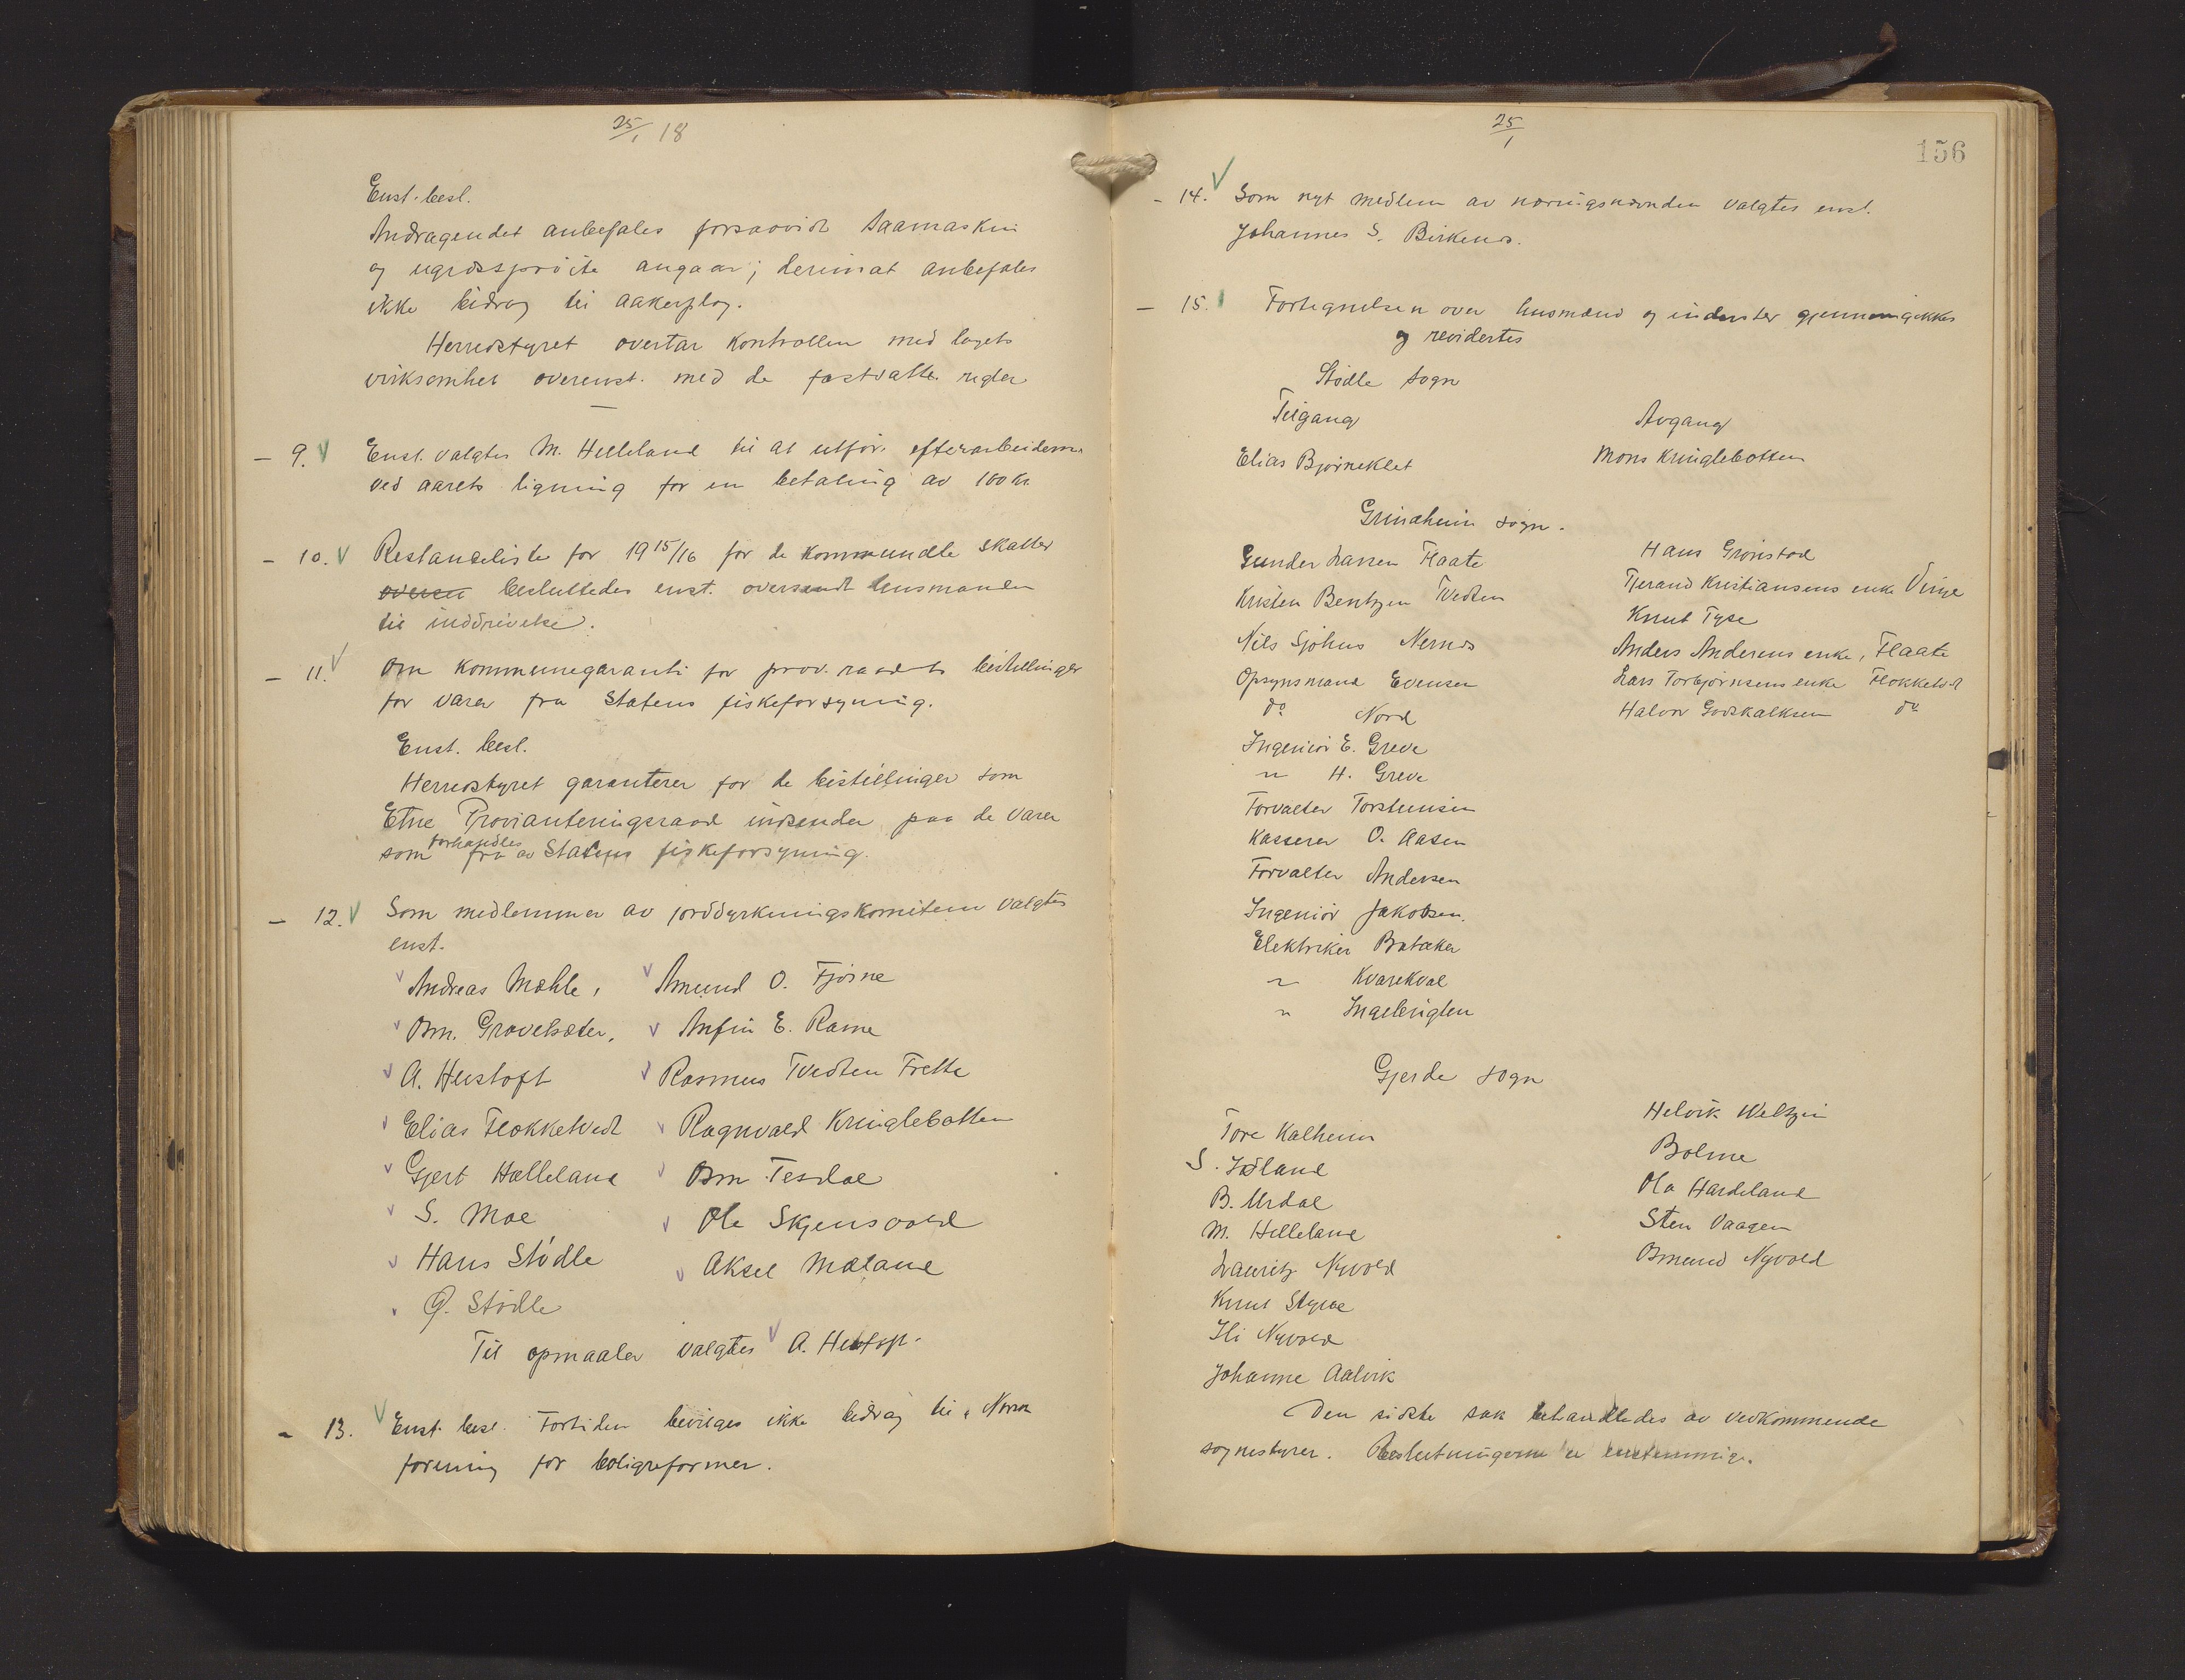 25/1 18
Enst. besl.
Andragendet anbefales forsaavidt saamaskin
og ugrdssprøite angaar; derimot anbefales
ikke bidrag til aakerplog.
Herredstyret overtar kontrollen med lagets
virksomhet overenst. med de fastsatte regler
- 9. Enst. valgtes M. Helleland til at utføre efterarbeiderne
ved aarets ligning for en betaling av 100 kr.
- 10. Restanseliste for 1915/16 for de kommunale skatter
oversen besluttedes enst. oversendt lensmanden
til inddrivelse.
- 11. Om kommunegaranti for prov. raadets bestillinger
for varer fra Statens fiskeforsyning.
Enst. besl.
Herredstyret garanterer for de bestillinger som
Etne Provianteringsraad indsender paa de varer
forhandles
som fra av Statens fiskeforsyning.
- 12. Som medlemmer av jorddyrkningskomiteen valgtes
enst.
Andreas Mæhle, Amund O. Fjøsne
Osm. Gravelsæter, Anfin E. Rame
A. Hustoft Rasmus Tvedten Frette
Elias Flokketvedt Ragnvald Kringlebotten
Gjert Hælleland Osm. Tesdal
S. Moe Ole Skjensvold
Hans Stødle Aksel Mæland
G. Stødle
Til opmaaler valgtes A. Hustoft.
- 13. Enst. besl. Fortiden bevilges ikke bidrag til Norsk
forening for boligreformer.
25/1
156
- 14. Som nyt medlem av næringsnævnden valgtes enst.
Johannes S. Birkenes.
- 15. Fortegnelsen over husmænd og inderster gjennemgikkes
og revidertes
Stødle sogn
Tilgang Avgang
Elias Bjørneklet Mons Kringlebotten
Grindheim sogn.
Gunder Larsen Flaate Hans Grønstad
Kristen Bentzen Tvedten Tjerand Kristiansens enke Vinje
Nils Sjøhus Nernes Knut Tyse
Opsynsmand Evensen Anders Andersens enke, Flaate
do Nord Lars Torbjørnsens enke Flokketvdt
Ingeniør E. Greve Halvor Godskalksen do
" H. Greve
Forvalter Torstensen
Kasserer O. Aasen
Forvalter Andersen
Ingeniør Jakobsen.
Elektriker Bratæker
" Kvarekval
" Ingebrigtsen
Gjerde sogn
Tore Kalheim Helvik Weltzin
S. Jøsland Bolme
B. Urdal Ola Hardeland
M. Helleland Sten Vaagen
Lauritz Nyvold Osmund Nyvold
Knut Styve
Ili Nyvold
Johanne Aalvik
Den sidste sak behandledes av vedkommende
sognestyrer. Beslutningerne er enstemmige.